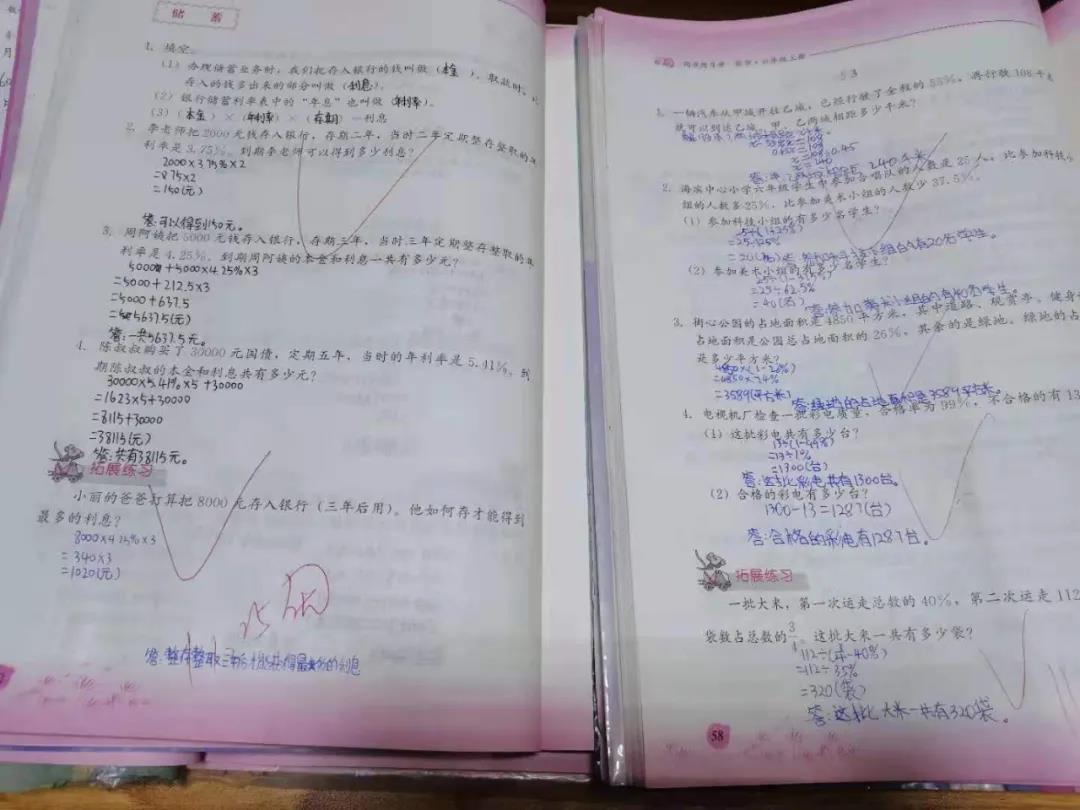 储 蓄
1. 填空。
(1) 办理储蓄业务时，我们把存入银行的钱叫做（本金），取款时，比
存入的钱多出来的部分叫做（利息）。
(2) 银行储蓄利率表中的“年息”也叫做（年利率）。
(3)（本金）×（年利率）×（存期）＝利息
2. 李老师把2000元钱存入银行，存期二年，当时二年定期整存整取的年
利率是3.75%。到期李老师可以得到多少利息？
2000×3.75%×2
=75×2
=150(元)
答:可以得到150元。
3. 周阿姨把5000元钱存入银行，存期三年，当时三年定期整存整取的年
利率是4.25%。到期周阿姨的本金和利息一共有多少元？
5000+5000×4.25%×3
=5000+212.5×3
=5000+637.5
=5637.5(元)
答:一共5637.5元。
4. 陈叔叔购买了30000元国债，定期五年，当时的年利率是5.41%，到
期陈叔叔的本金和利息共有多少元？
30000×5.41%×5+30000
=1623×5+30000
=8115+30000
=38115(元)
答:共有38115元。
拓展练习
小丽的爸爸打算把8000元存入银行（三年后用）。他如何存才能得到
最多的利息？
8000×4.25%×3
=340×3
=1020(元)
答:整存整取三年
的利息
同步练习册·数学·六年级上册
1. 一辆汽车从甲城开往乙城，已经行驶了全程的55%，再行驶108千米
就可以到达乙城，甲、乙两城相距多少千米？
240千米
2. 海滨中心小学六年级学生中参加合唱队的人数是25人，比参加科技小
组的人数多25%，比参加美术小组的人数少37.5%。
(1) 参加科技小组的有多少名学生？
25÷(1+25%)
=25÷125%
=20(名)
有20名学生。
(2) 参加美术小组的有多少名学生？
25÷(1-37.5%)
=25÷62.5%
=40(名)
答:参加美术小组的有40名学生。
3. 街心公园的占地面积是4850平方米，其中道路、观赏亭、健身
占地面积是公园总占地面积的26%，其余的是绿地。绿地的占
是多少平方米？
4850×(1-26%)
=4850×74%
=3589(平方米)
答:绿地的占地面积是3589平方米。
4. 电视机厂检查一批彩电质量，合格率为99%，不合格的有13
(1) 这批彩电共有多少台？
13÷(1-99%)
=13÷1%
=1300(台)
答:这批彩电共有1300台。
(2) 合格的彩电有多少台？
1300-13=1287(台)
答:合格的彩电有1287台。
拓展练习
一批大米，第一次运走总数的40%，第二次运走112
袋数占总数的3/4。这批大米一共有多少袋？
112÷(3/4-40%)
=112÷35%
=320(袋)
答:这批大米一共有320袋。
58